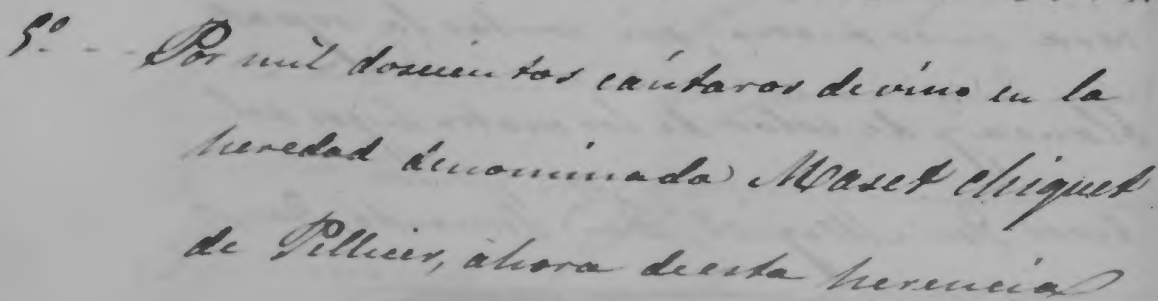 5º -- Por mil doscientos cántaros de vino en la
heredad denominada Maset chiquet
de Pellicer, ahora de esta herencia